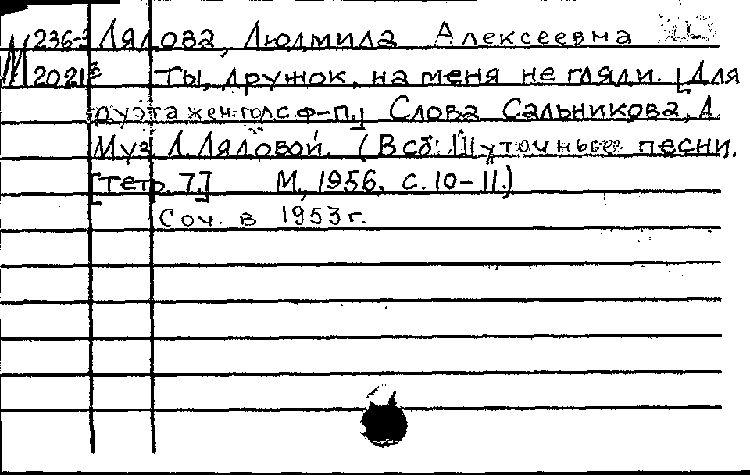 М 236-3 Лядова, Людмила Алексеевна
2021 Ты, дружок, на меня не гляди. [Для
дуэта жен. голс ф-п.] Слова Сальникова, А.
Муз. Л. Лядовой. (В сб: Шуточные песни.
[Тетр. 7.] М, 1956, с. 10-11.)
Соч. в 1953г.